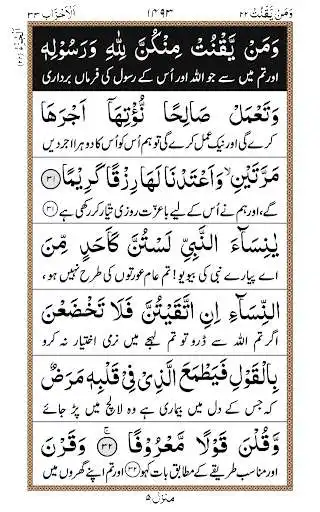 وَمَنْ يَّقْنُتْ ٢٢ ١٤٩٣ اَلْاَحْزَاب ٣٣
وَمَنْ يَّقْنُتْ مِنْكُنَّ لِلّٰهِ وَرَسُوْلِهٖ
اور تم میں سے جو اللہ اور اُس کے رسول کی فرماں برداری
وَتَعْمَلْ صَالِحًا نُّؤْتِهَاۤ اَجْرَهَا
کرے گی اور نیک عمل کرے گی تو ہم اُس کو اُس کا دوہرا اجر دیں
مَرَّتَيْنِ ۙ وَاَعْتَدْنَا لَهَا رِزْقًا كَرِيْمًا ﴿٣١﴾
گے، اور ہم نے اُس کے لیے باعزت روزی تیار کر رکھی ہے ﴿٣١﴾
يٰنِسَآءَ النَّبِيِّ لَسْتُنَّ كَاَحَدٍ مِّنَ
اے پیارے نبی کی بیویو! تم عام عورتوں کی طرح نہیں ہو،
النِّسَآءِ اِنِ اتَّقَيْتُنَّ فَلَا تَخْضَعْنَ
اگر تم اللہ سے ڈرو تو تم لہجے میں نرمی اختیار نہ کرو
بِالْقَوْلِ فَيَطْمَعَ الَّذِيْ فِيْ قَلْبِهٖ مَرَضٌ
کہ جس کے دل میں بیماری ہے وہ لالچ میں پڑ جائے
وَّقُلْنَ قَوْلًا مَّعْرُوْفًا ﴿٣٢﴾ وَقَرْنَ
اور مناسب طریقے کے مطابق بات کہو ﴿٣٢﴾ اور تم اپنے گھروں میں
منزل ٥